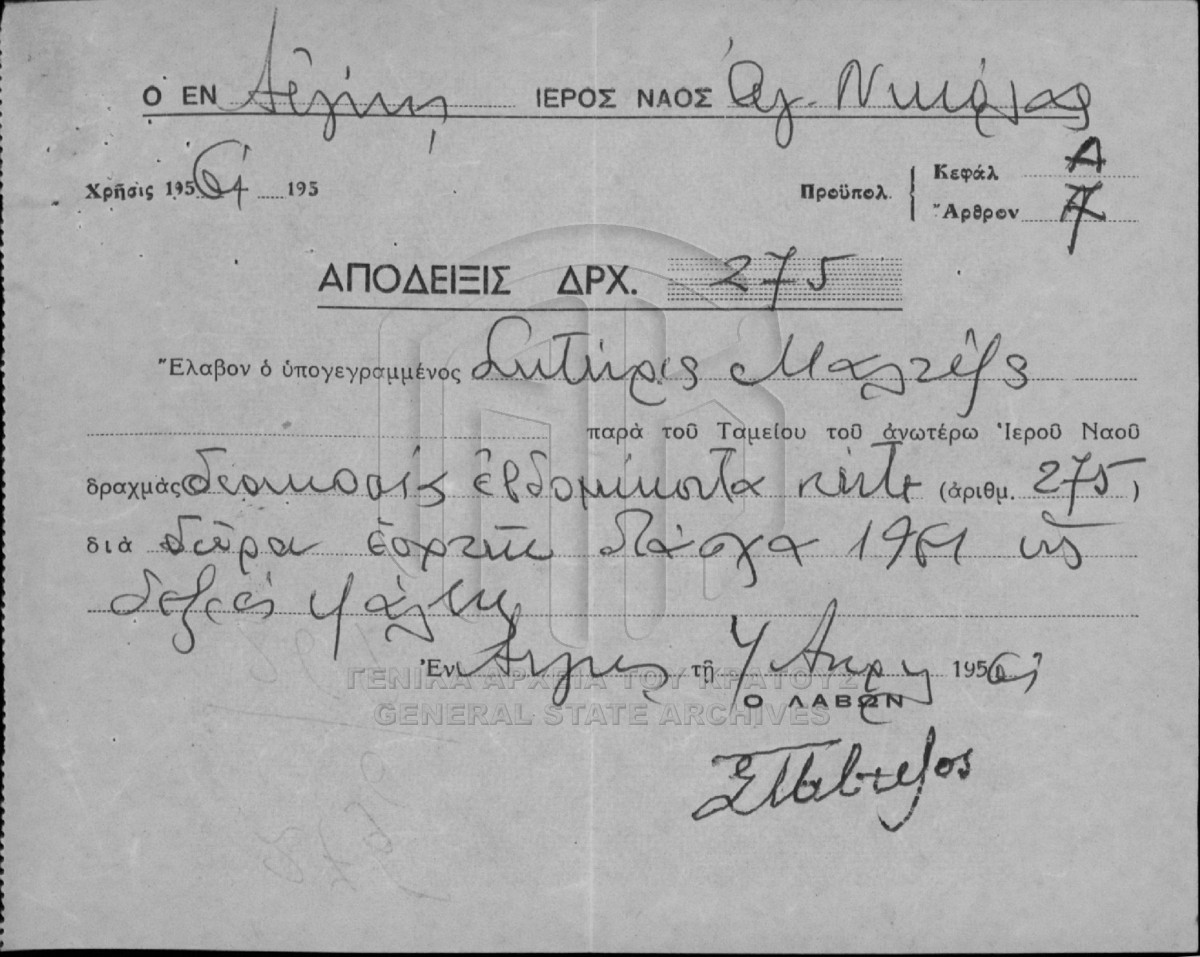 Ο ΕΝ Αἰγίνῃ ΙΕΡΟΣ ΝΑΟΣ Ἁγ. Νικόλαος
Χρῆσις 195 61 195
Προϋπολ. Κεφάλ Α
Ἄρθρον 7
ΑΠΟΔΕΙΞΙΣ ΔΡΧ. 275
Ἔλαβον ὁ ὑπογεγραμμένος Σωτήρις Μαλτέζος
παρὰ τοῦ Ταμείου τοῦ ἀνωτέρω Ἱεροῦ Ναοῦ
δραχμὰς διακοσίας ἑβδομήκοντα πέντε (ἀριθμ. 275)
διὰ δῶρα ἑορτῶν Πάσχα 1961 ὡς
δεξιός ψάλτης
Ἐν Αἰγίνῃ τῇ 4 Απρ 195 61
Ο ΛΑΒΩΝ
ΣΜαλτεζος
ΓΕΝΙΚΑ ΑΡΧΕΙΑ ΤΟΥ ΚΡΑΤΟΥΣ
GENERAL STATE ARCHIVES